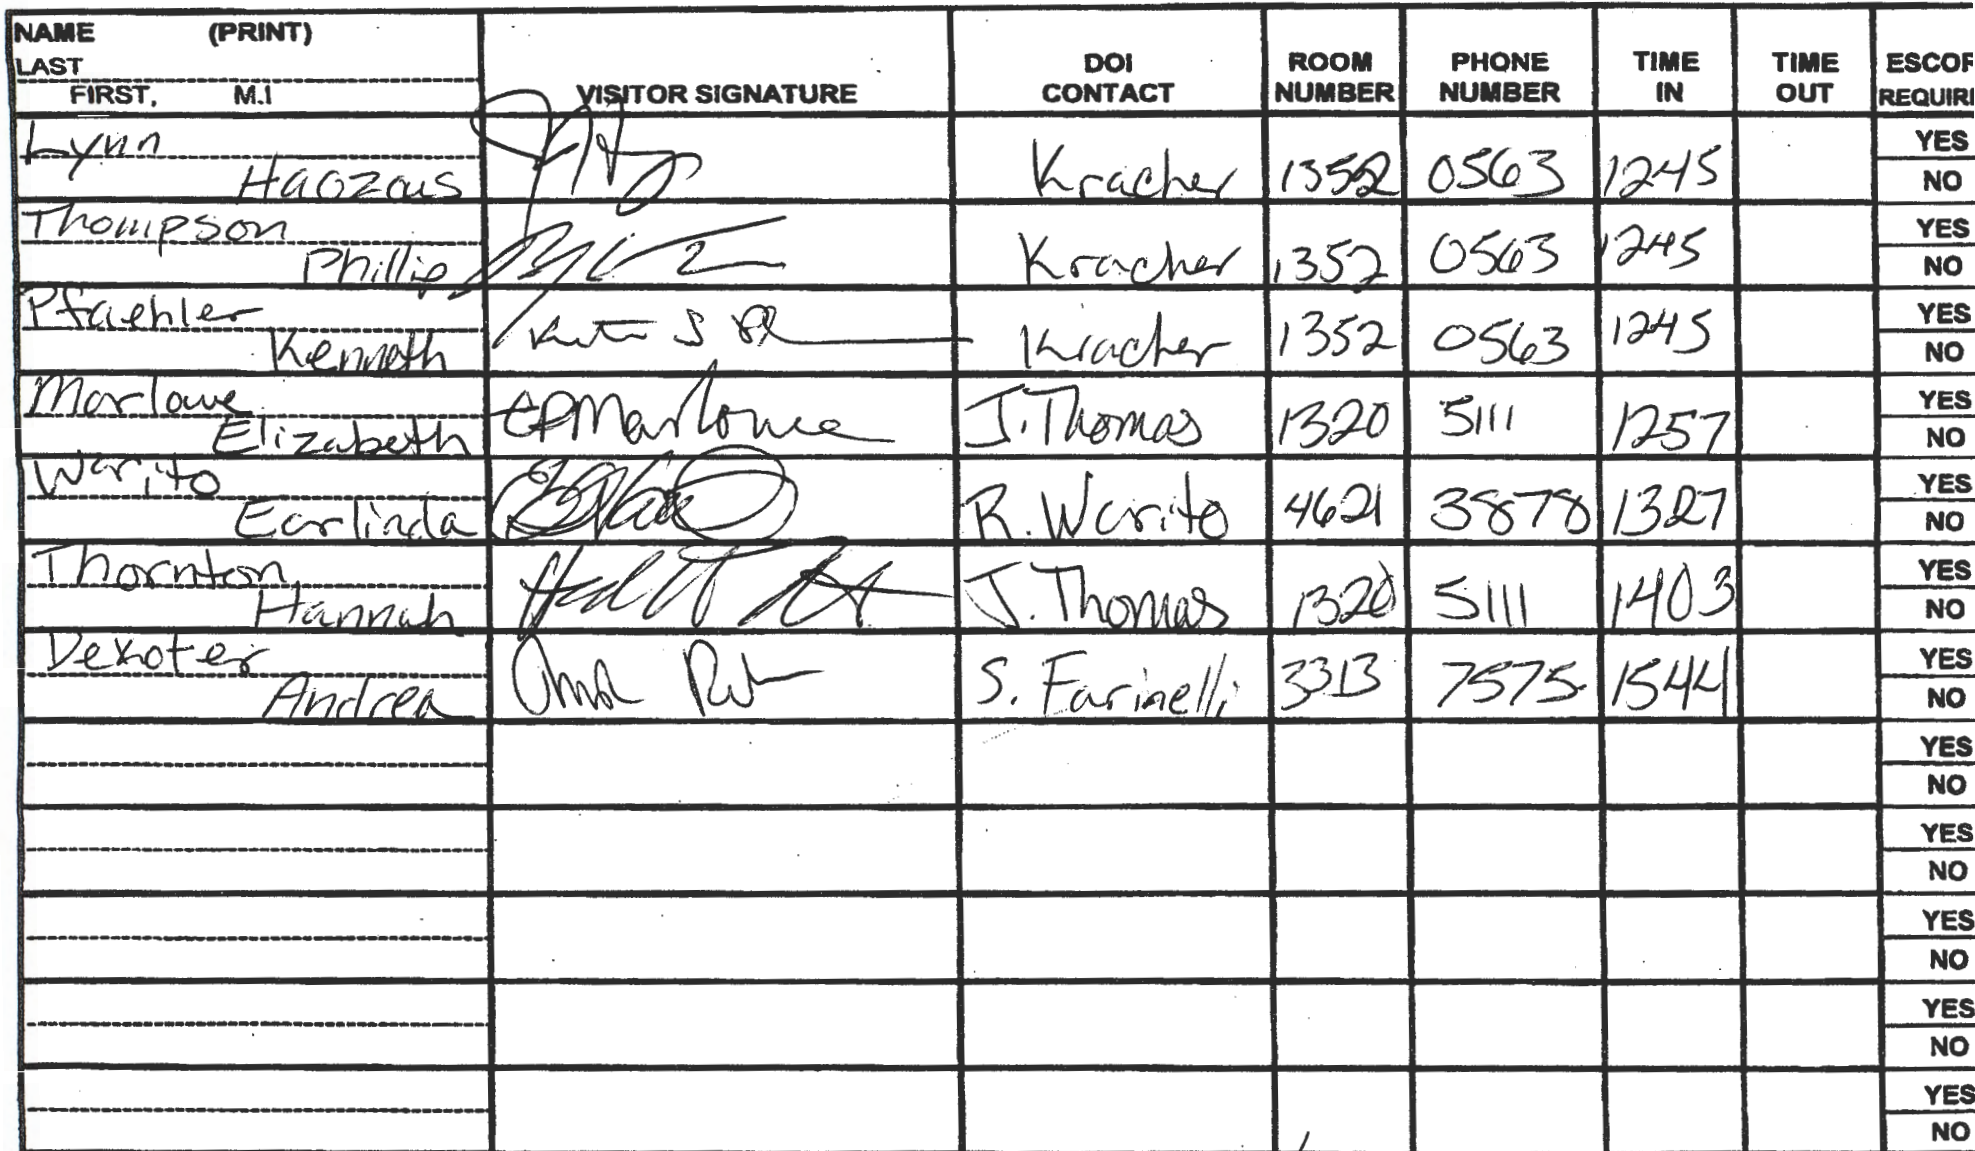 NAME (PRINT)
LAST
FIRST, M.I
VISITOR SIGNATURE
DOI CONTACT
ROOM NUMBER
PHONE NUMBER
TIME IN
TIME OUT
ESCOR
REQUIRE
Lynn
Haozous Kracher 1352 0563 1245 YES NO
Thompson
Phillip Kracher 1352 0563 1245 YES NO
Pfaehler
Kenneth Kracher 1352 0563 1245 YES NO
Marlowe
Elizabeth EPMarlowe J. Thomas 1320 5111 1257 YES NO
Warito
Earlinda R. Warito 4621 3878 1327 YES NO
Thornton,
Hannah J. Thomas 1320 5111 1403 YES NO
Dekoter
Andrea S. Farinelli 3313 7575 1544 YES NO
YES
NO
YES
NO
YES
NO
YES
NO
YES
NO